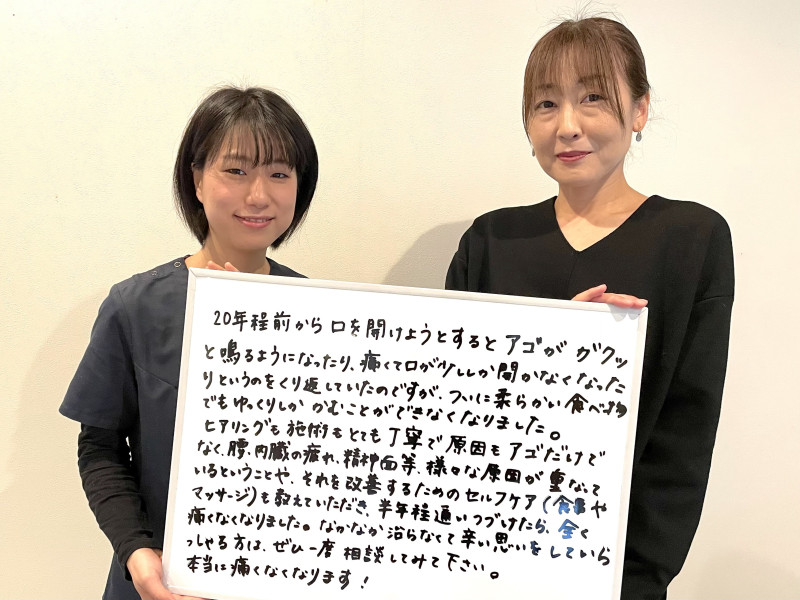 20年程前から口を開けようとするとアゴがガクッ
と鳴るようになったり、痛くて口が少ししか開かなくなった
りというのをくり返していたのですが、ついに柔らかい食べ物
でもゆっくりしかかむことができなくなりました。
ヒアリングも施術もとても丁寧で原因もアゴだけで
なく、腰、内臓の疲れ、精神面等、様々な原因が重なって
いるということや、それを改善するためのセルフケア(食事や
マッサージ)も教えていただき、半年程通いつづけたら、全く
痛くなくなりました。なかなか治らなくて辛い思いをしていら
っしゃる方は、ぜひ一度相談してみて下さい。
本当に痛くなくなります!